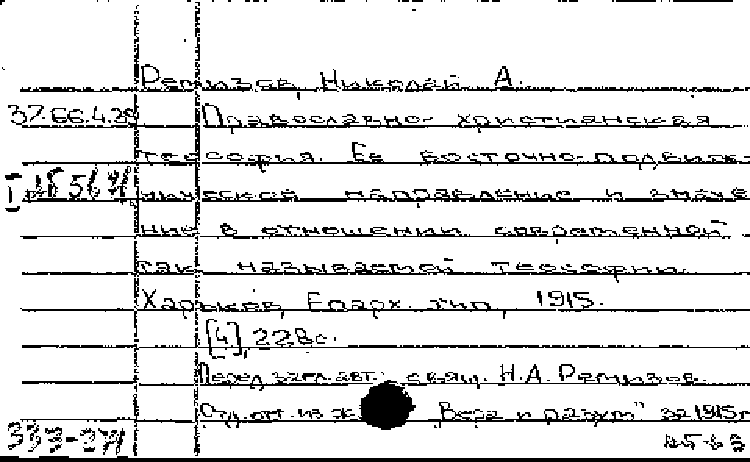 Ремизов, Николай А.
37.66.4.28 Православно-христианская
теософия. Ее восточно-подвиж-
ническое направление и значе-
ние в отношении современной
так называемой теософии.
Харьков, Епарх. тип., 1915.
[4], 228 с.
Перед загл. авт.: свящ. Н.А. Ремизов.
Отд. отт. из ж "Вера и разум" за 1915 г
333-271